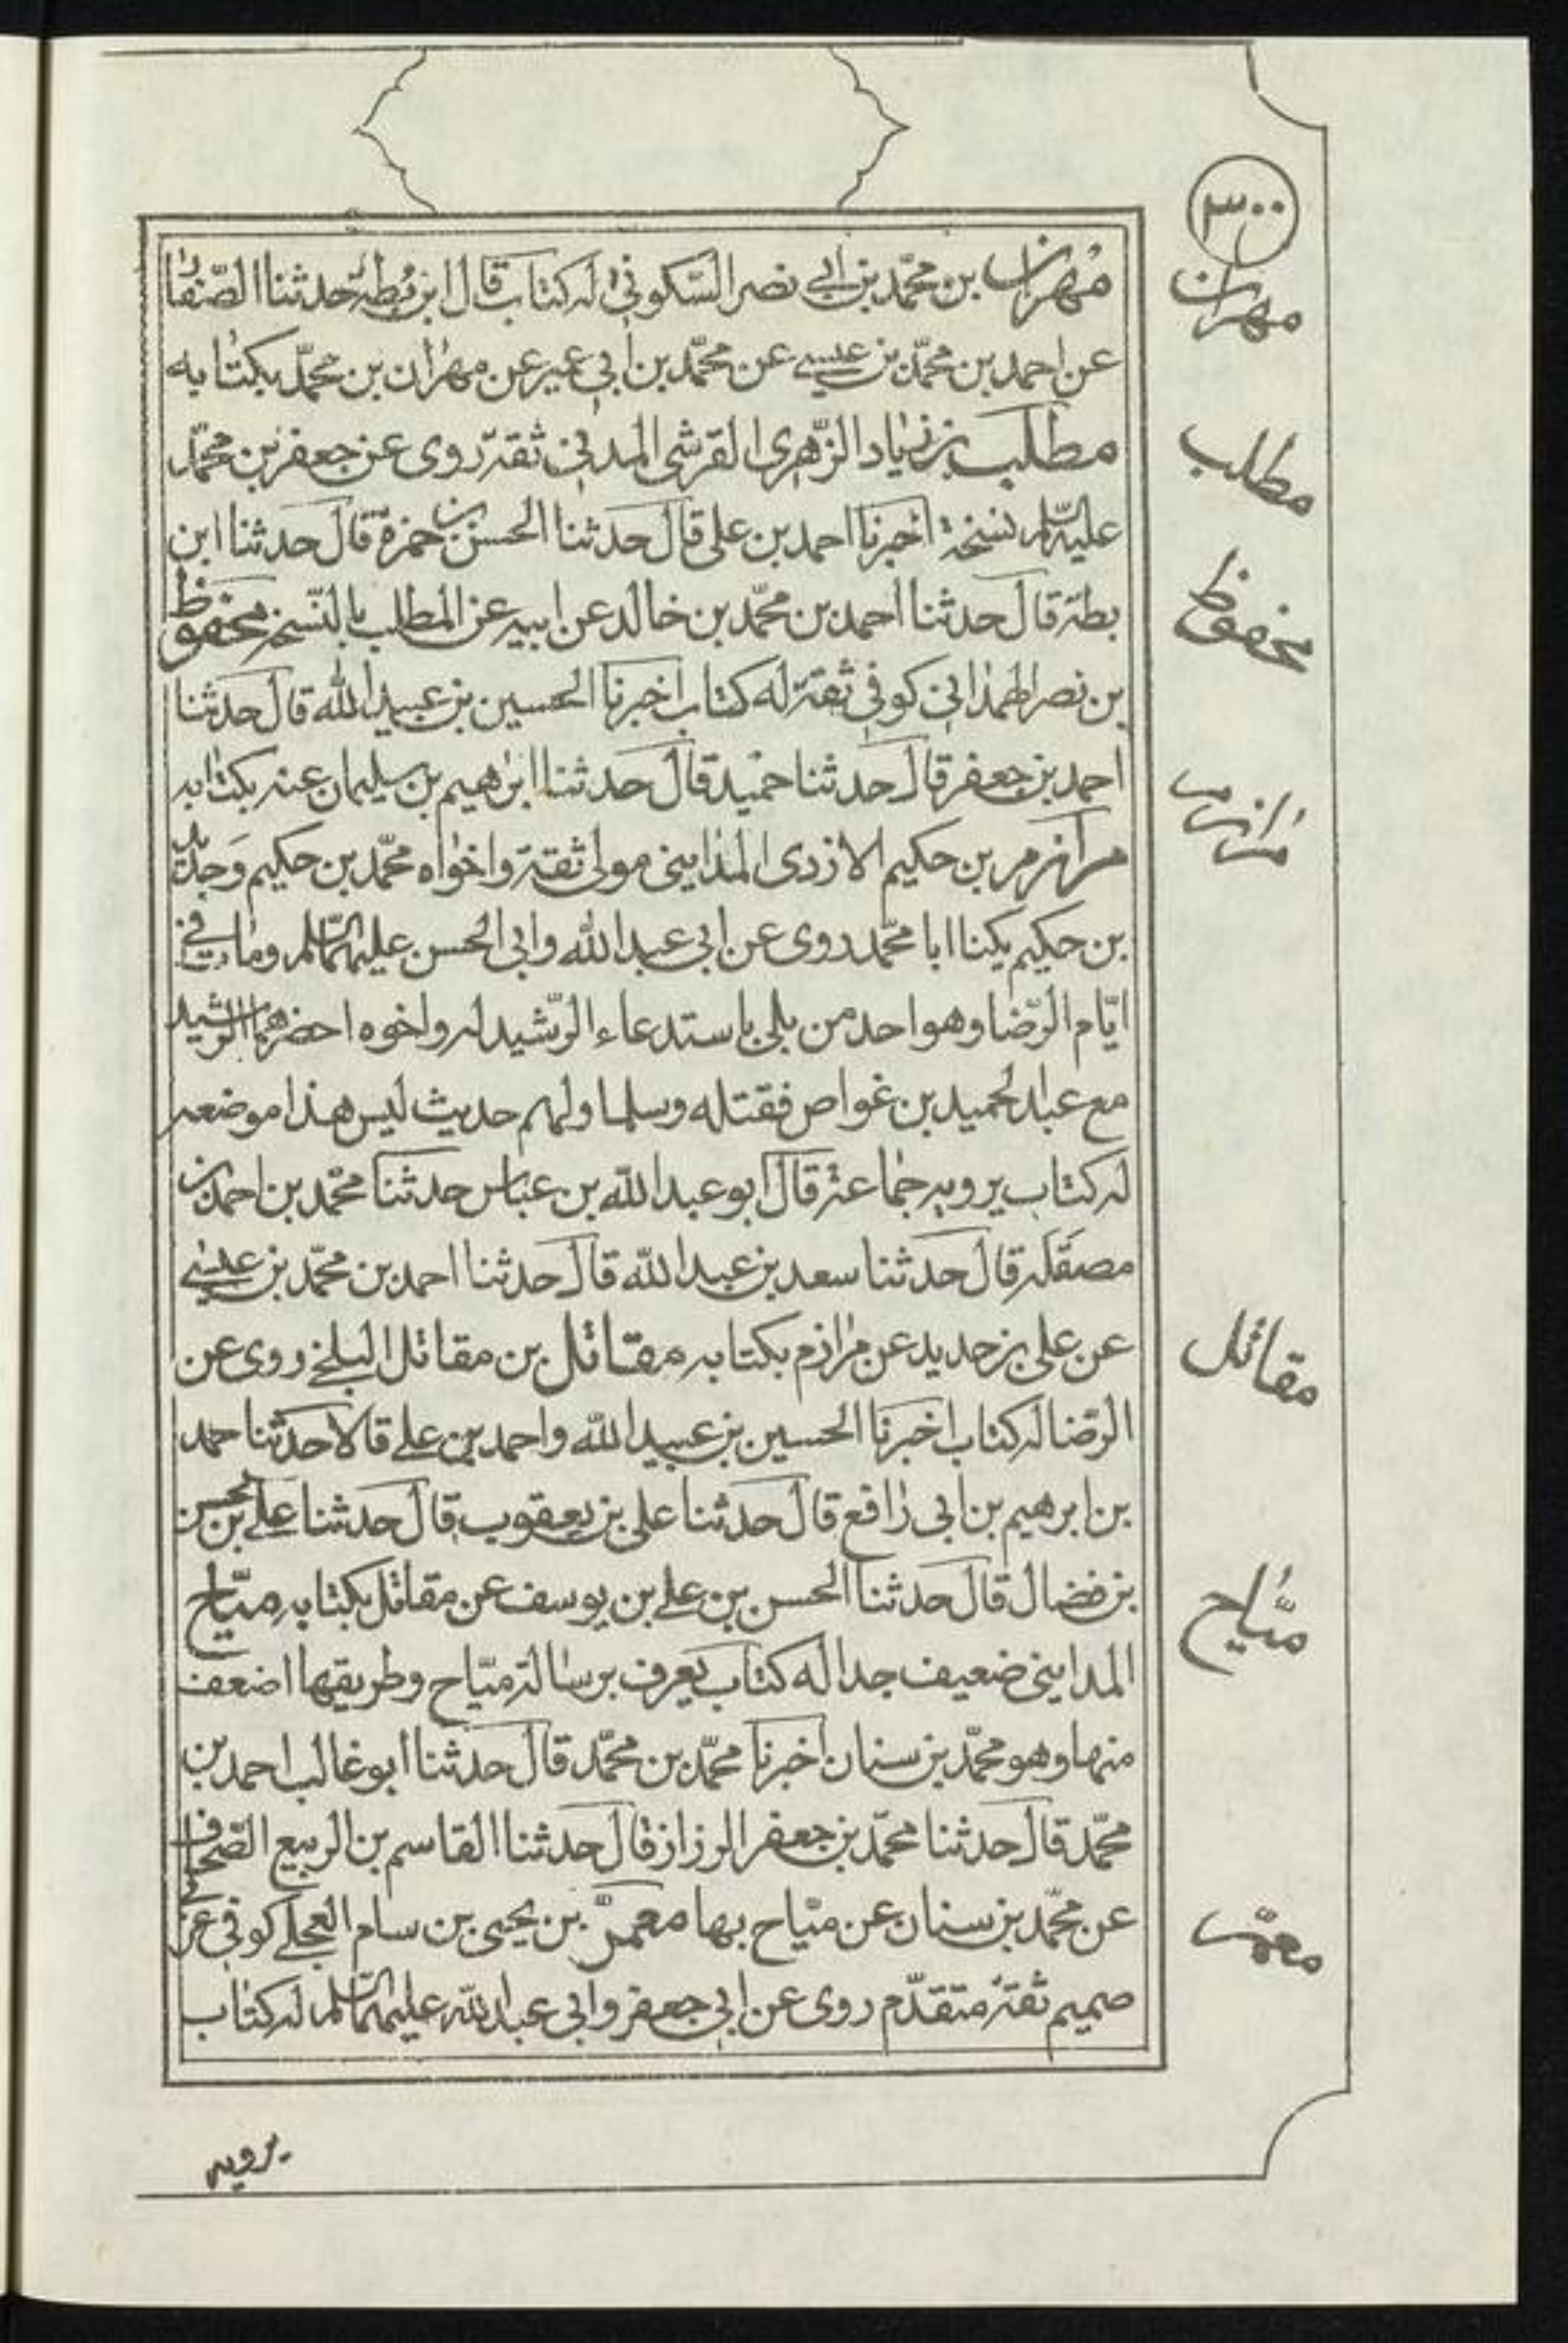 ٣٠٠
مهران بن محمّد بن ابي نصر السّكوني له كتاب قال ابن بُطة حدثنا الصّفّار
مهران
عن احمد بن محمّد بن عيسى عن محمّد بن ابي عمير عن مهران بن محمّد بكتابه
مطلب بن زياد الزّهرى القرشى المدني ثقة روى عن جعفر بن محمّد
مطلب
عليه السّلم نسخة اخبرنا احمد بن على قال حدثنا الحسن بن حمزة قال حدثنا ابن
بطة قال حدثنا احمد بن محمّد بن خالد عن ابيه عن المطلب بالنّسخة محفوظ
محفوظ
بن نصر الهمداني كوفي ثقة له كتاب اخبرنا الحسين بن عبيد الله قال حدثنا
احمد بن جعفر قال حدثنا حميد قال حدثنا ابرهيم بن سليمان عنه بكتابه
مرازم بن حكيم الازدى المدايني مولى ثقة واخواه محمّد بن حكيم وحديد
مرازم
بن حكيم يكنا ابا محمّد روى عن ابى عبد الله وابى الحسن عليهما السّلم ومات في
ايّام الرّضا وهو احد من بلى باستدعاء الرّشيد له واخوه احضرهما الرّشيد
مع عبد الحميد بن غواص فقتله وسلما ولهم حديث ليس هذا موضعه
له كتاب يرويه جماعة قال ابو عبد الله بن عباس حدثنا محمّد بن احمد بن
مصقلة قال حدثنا سعد بن عبد الله قال حدثنا احمد بن محمّد بن عيسى
عن على بن حديد عن مرازم بكتابه مقاتل بن مقاتل البلخي روى عن
مقاتل
الرّضا له كتاب اخبرنا الحسين بن عبيد الله واحمد بن على قالا حدثنا احمد
بن ابرهيم بن ابى رافع قال حدثنا على بن يعقوب قال حدثنا على بن الحسن
بن فضال قال حدثنا الحسن بن على بن يوسف عن مقاتل بكتابه ميّاح
ميّاح
المدايني ضعيف جدا له كتاب يعرف برسالة ميّاح وطريقها اضعف
منها وهو محمّد بن سنان اخبرنا محمّد بن محمّد قال حدثنا ابو غالب احمد بن
محمّد قال حدثنا محمّد بن جعفر الرزاز قال حدثنا القاسم بن الربيع الصّحاف
عن محمّد بن سنان عن ميّاح بها معمر بن يحيى بن سام العجلي كوفي عربي
معمر
صميم ثقة متقدّم روى عن ابي جعفر وابي عبد الله عليهما السّلم له كتاب
يرويه